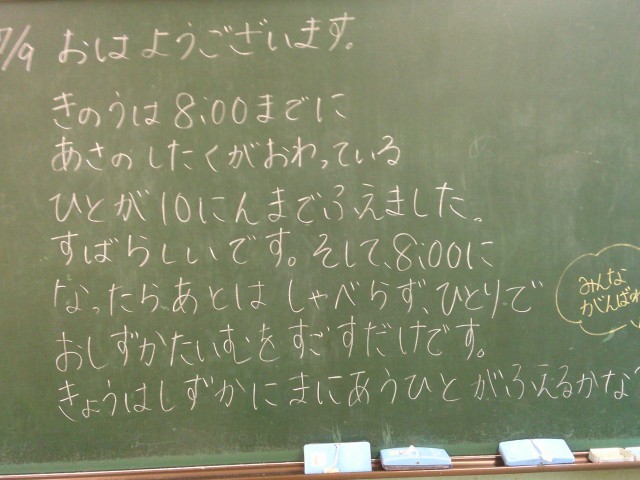 7/9 おはようございます。
きのうは8:00までに
あさのしたくがおわっている
ひとが10にんまでふえました。
すばらしいです。そして、8:00に
なったらあとは しゃべらず、ひとりで
おしずかたいむをすごすだけです。
きょうはしずかにまにあうひとがふえるかな?
みんな
がんばれ